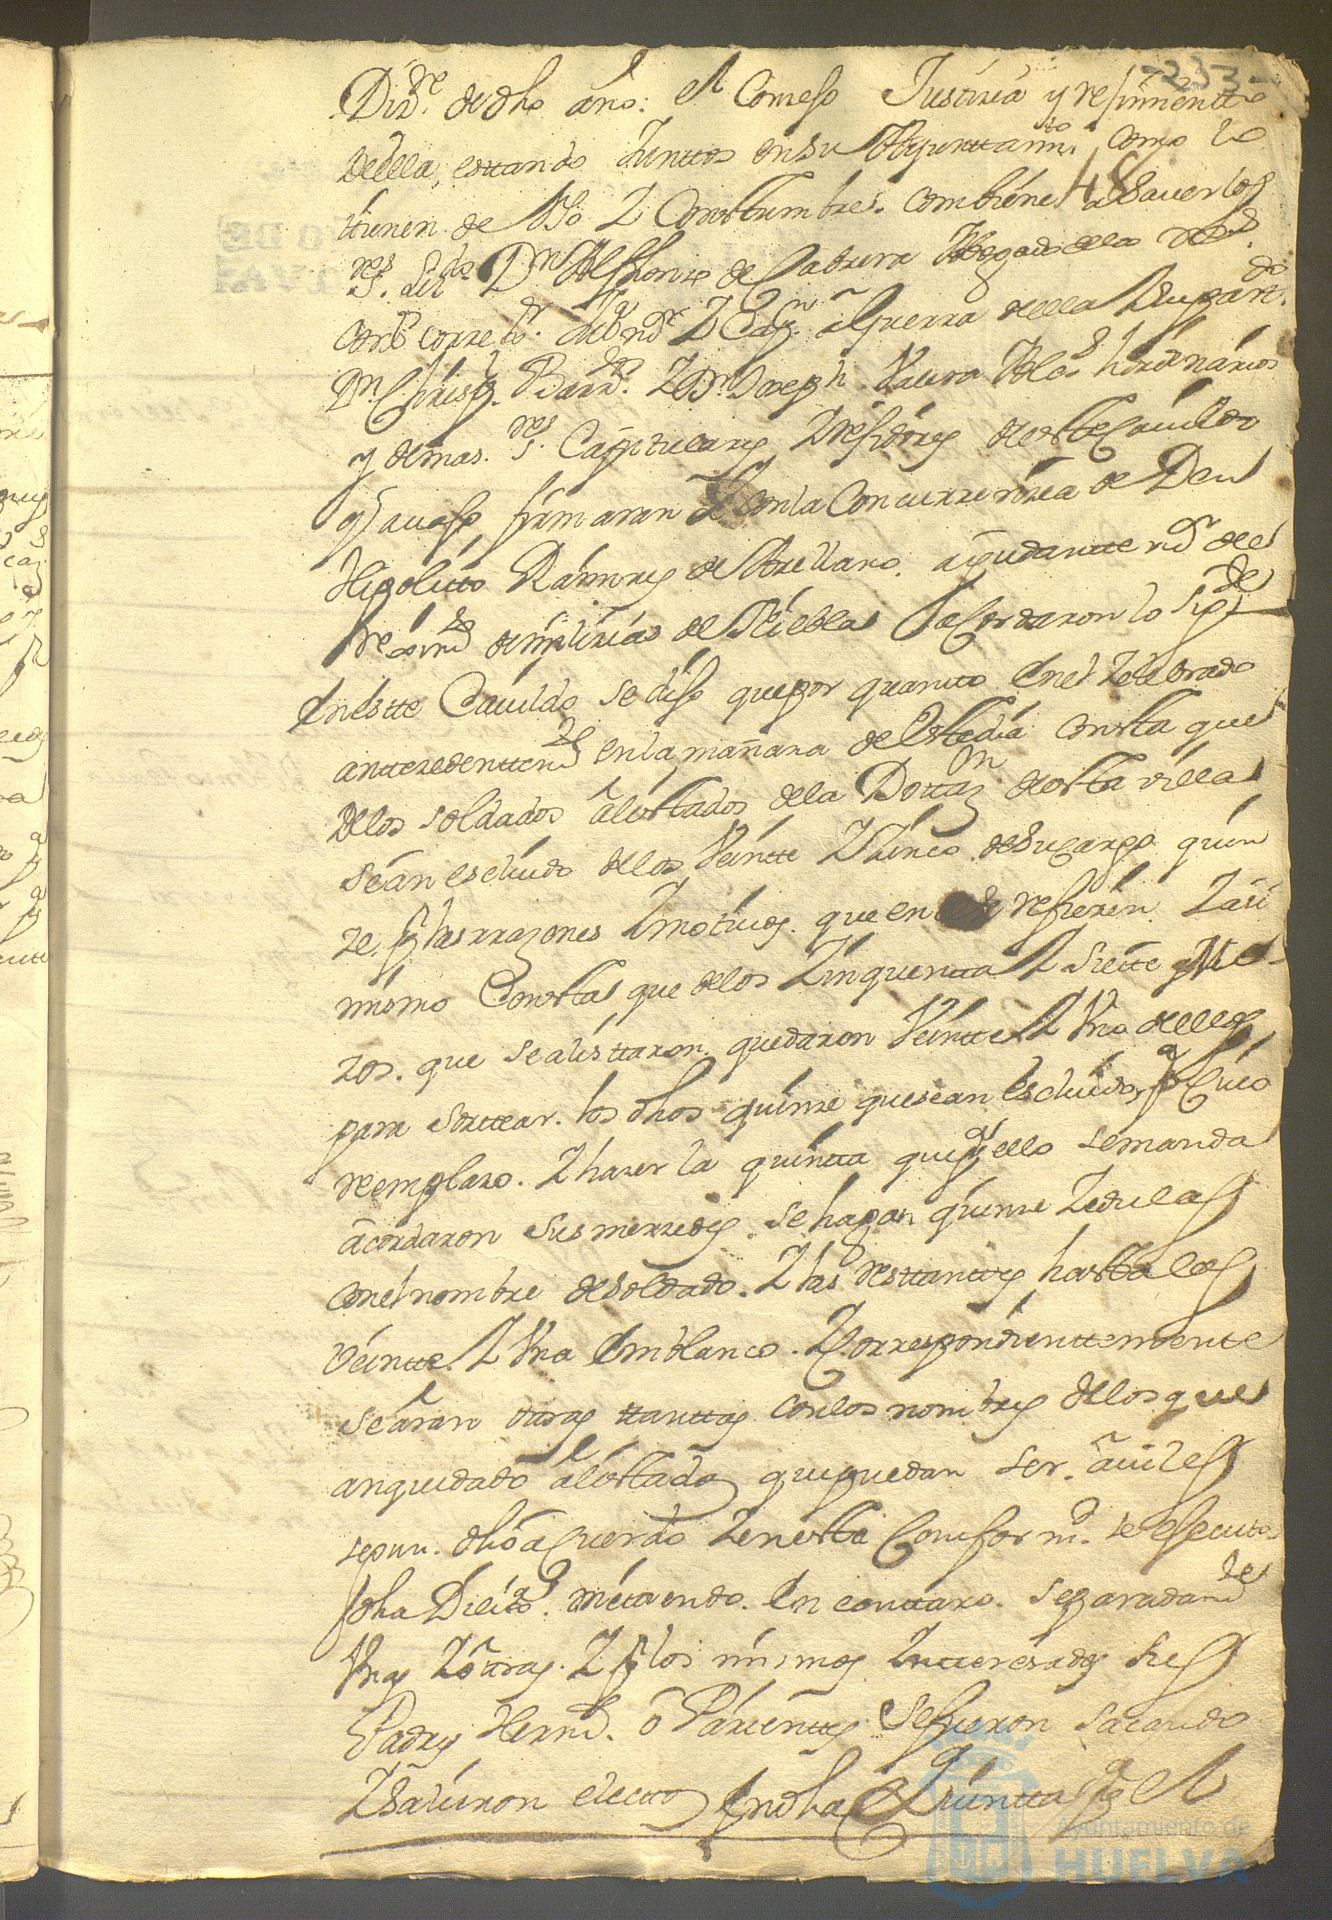 -233-
Diz.re de dho año: el Comeso Justizia y resimiento
de ella, estando Junttos en su Ayunttam.to como lo
48
ttienen de Uso Z Costumbre. combiene a Saver los
S.res Lic.do D.n Alphonso de Cabrera Abogado de los R.s
Cons.s corre.or Z Cap.n a Guerra de ella Z Su part.do
D.n Chrisp. Barr. Z D.n Joseph Valera Alc.s hordinarios
y demas S.res Capitulares Z rexidores de este Cavildo
q avaso firmaran Z con la Concurrenzia de Don
Hipolitto Ramires de Arellano ayudantte de el
de milizias de Niebla Acordaron lo sig.te
En este Cavildo se diso que por quanto En el Zelebrado
anttezedentte en la mañana de Este dia Consta que
de los soldados alistados de la Dottaz.n de esta villa
se an escluido de los Veintte Z Sinco de Su Cargo quin
ze p.r las rrazones Z motivos que en refieren. Z asi
mismo Consta que de los Zinquentta Z Siette Mo
zos. que se alisttaron quedaron Veintte Z Uno de ellos
para sorttear. los dhos quinze que se an Escluidos p.a Cuio
remplazo. Z hazer la quintta que p.r ello se manda
acordaron sus merzedes. se hagan quinze Zedulas
con el nombre de Soldado. Z las resttantes hasta las
Veintte Z Una En blanco. Z Correspondienttemente
se aran otras ttanttas con los nombres de los que
an quedado alistados que puedan ser aviles
segun. dho aCuerdo Z en esta Conform.d se esecuto
dha Dilix.a mettiendo. En canttaro. separadam.te
Unas Z ottras. Z p.r los mismos Ynteresados sus
Padres Herm.s o Parientes se fueron sacando
Z Salieron electtos En dha Quintta p.r el
Ayuntamiento de
HUELVA